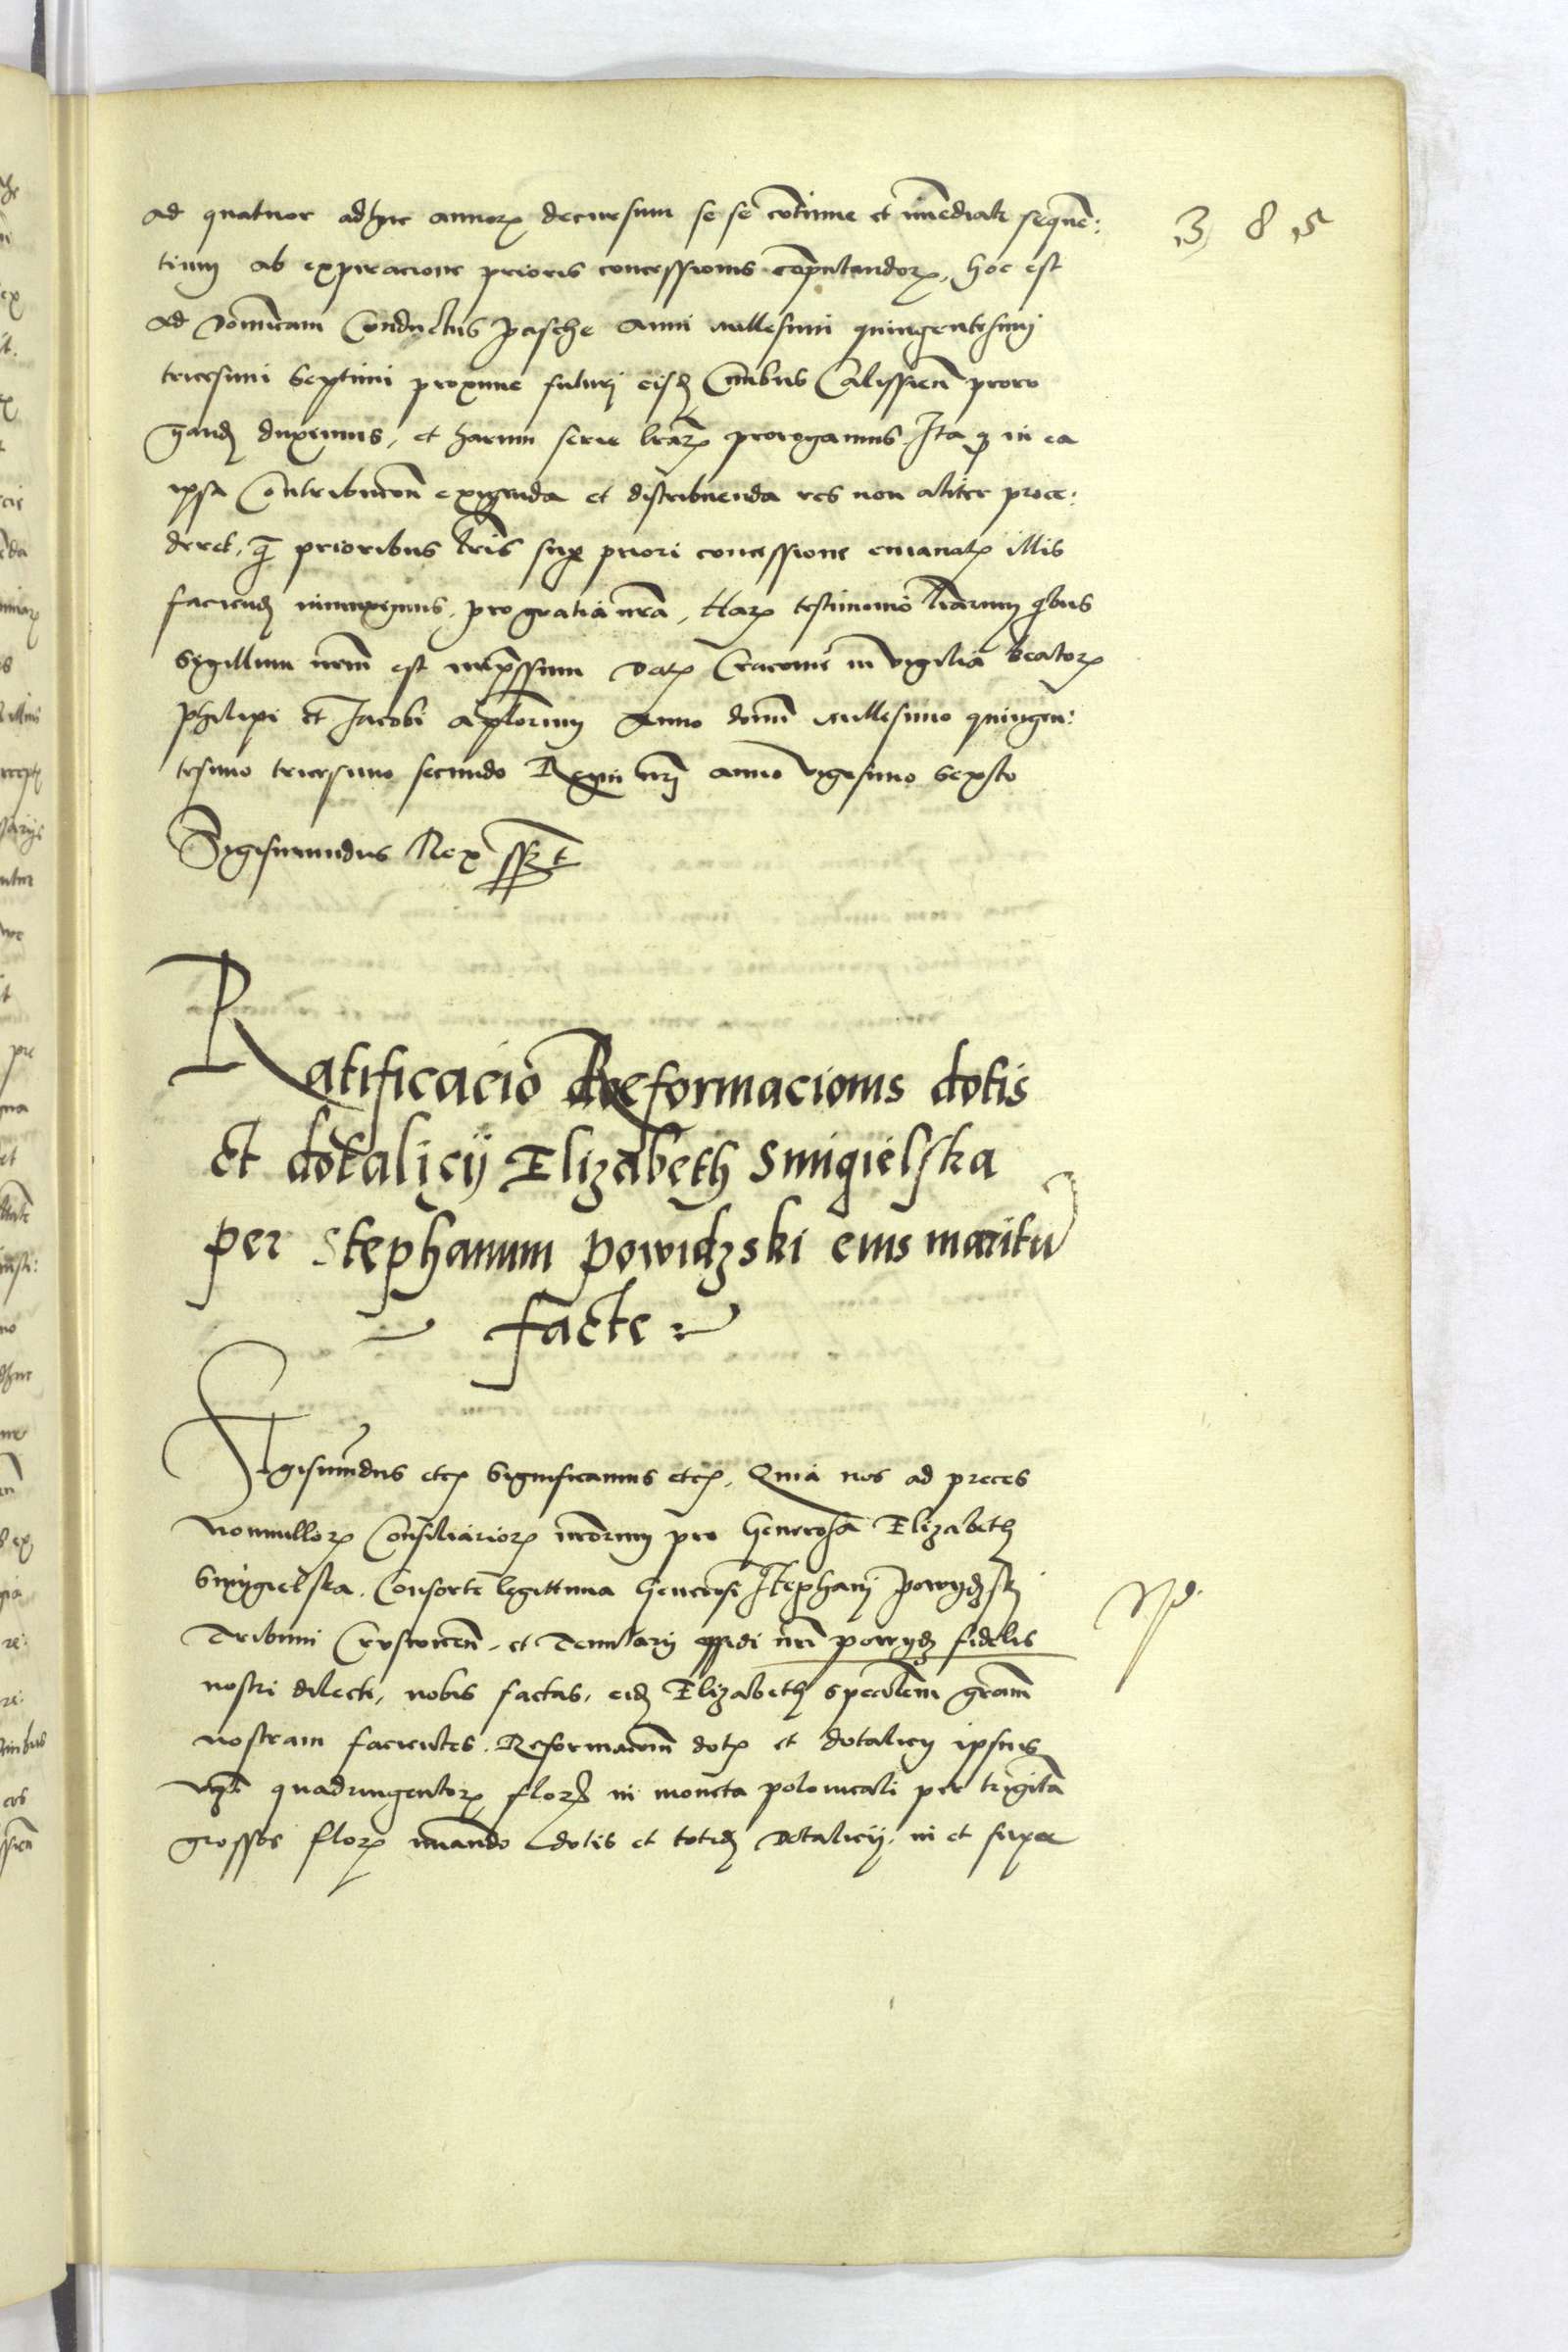 385
ad quatuor adhuc annorꝝ decursum se se cōtinue et īmediate sequē:
tium ab expiracione prioris concessionis cōputandorꝝ, hoc est
ad Domīcam Conductus pasche anni millesimi quingentesimi
tricesimi septimi proxime futuri eisdꝫ Cīnibus Calissień proro
gandꝫ duximus, et harum serie lr̄arꝝ prorogamus. Ita qꝫ in ea
ipsa Contribucōn exigenda et distribuenda res non aliter proce:
deret, q̄ prioribus lr̄is suꝑ priori concessione emanatꝭ illis
faciendꝫ iniunximus, pro gratia nr̄a, Harꝝ testimonio lr̄arum qͥbus
Sygillum nr̄m est imp̄ssum Datꝭ Cracouie in vigilia beatorꝝ
Philipi et Jacobi apl̄orum Anno domī Millesimo quingen:
tesimo tricesimo secundo Regni nr̄i anno vigesimo sexto
Sigismundus Rex sszt
Ratificacio Reformacionis dotis
et dotalicij Elizabeth Smigielska
per Stephanum powidzski eius maritū
facte
Sigismūdus etcꝭ Significamus etcꝭ. Quia nos ad preces
Nonnullorꝝ Consiliariorꝝ nr̄orum pro Generosa Elizabeth
Smygielska. Consorte legittima Generosi Stephani powydzski
Tribuni Crusvicień, et Tenutarij oppidi nr̄i powydz fidelis
nostri dilecti, nobis factas, eidꝫ Elizabeth specialem gr̄am
nostram facientes. Reformacōnem dotꝭ et dotalicij ipsius
vꝫ quadringentorꝝ florꝭ in moneta polonicali per trigīta
grossos florꝝ nūando dotis et totidꝫ dotalicij, in et super